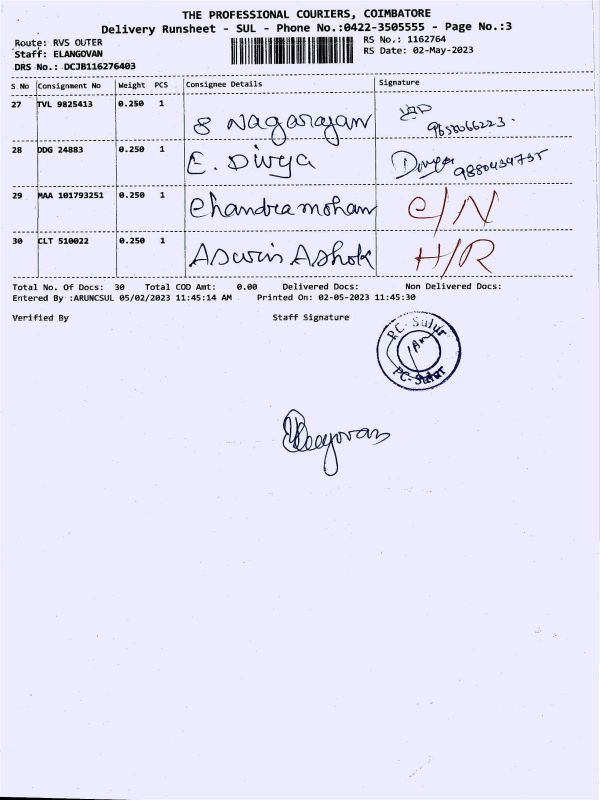 THE PROFESSIONAL COURIERS, COIMBATORE
Delivery Runsheet - SUL - Phone No.:0422-3505555 - Page No.:3
Route: RVS OUTER
RS No.: 1162764
Staff: ELANGOVAN
RS Date: 02-May-2023
DRS No.: DCJB116276403
S No Consignment No Weight PCS Consignee Details Signature
27 TVL 9825413 0.250 1 S Nagarajan 9658066223.
28 DDG 24883 0.250 1 E. Divya Divya 9880434735
29 MAA 101793251 0.250 1 Chandramohan C/N
30 CLT 510022 0.250 1 Aswin Ashok H/R
Total No. Of Docs: 30 Total COD Amt: 0.00 Delivered Docs: Non Delivered Docs:
Entered By :ARUNCSUL 05/02/2023 11:45:14 AM Printed On: 02-05-2023 11:45:30
Verified By Staff Signature
PC-Sulur
PC-Sulur
Elangovan